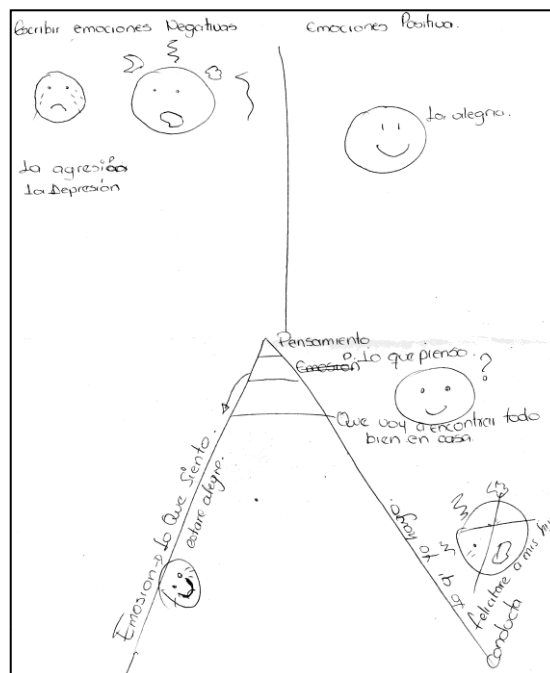 Escribir emociones Negativas
Emociones Positiva.
La alegria.
La agresión
La Depresión
Pensamiento
Emosion Lo que pienso.
?
Que voy a encontrar todo
bien en casa.
Emosion → Lo Que Siento.
estare alegre.
lo q. yo hago.
felicitare a mis
Conducta